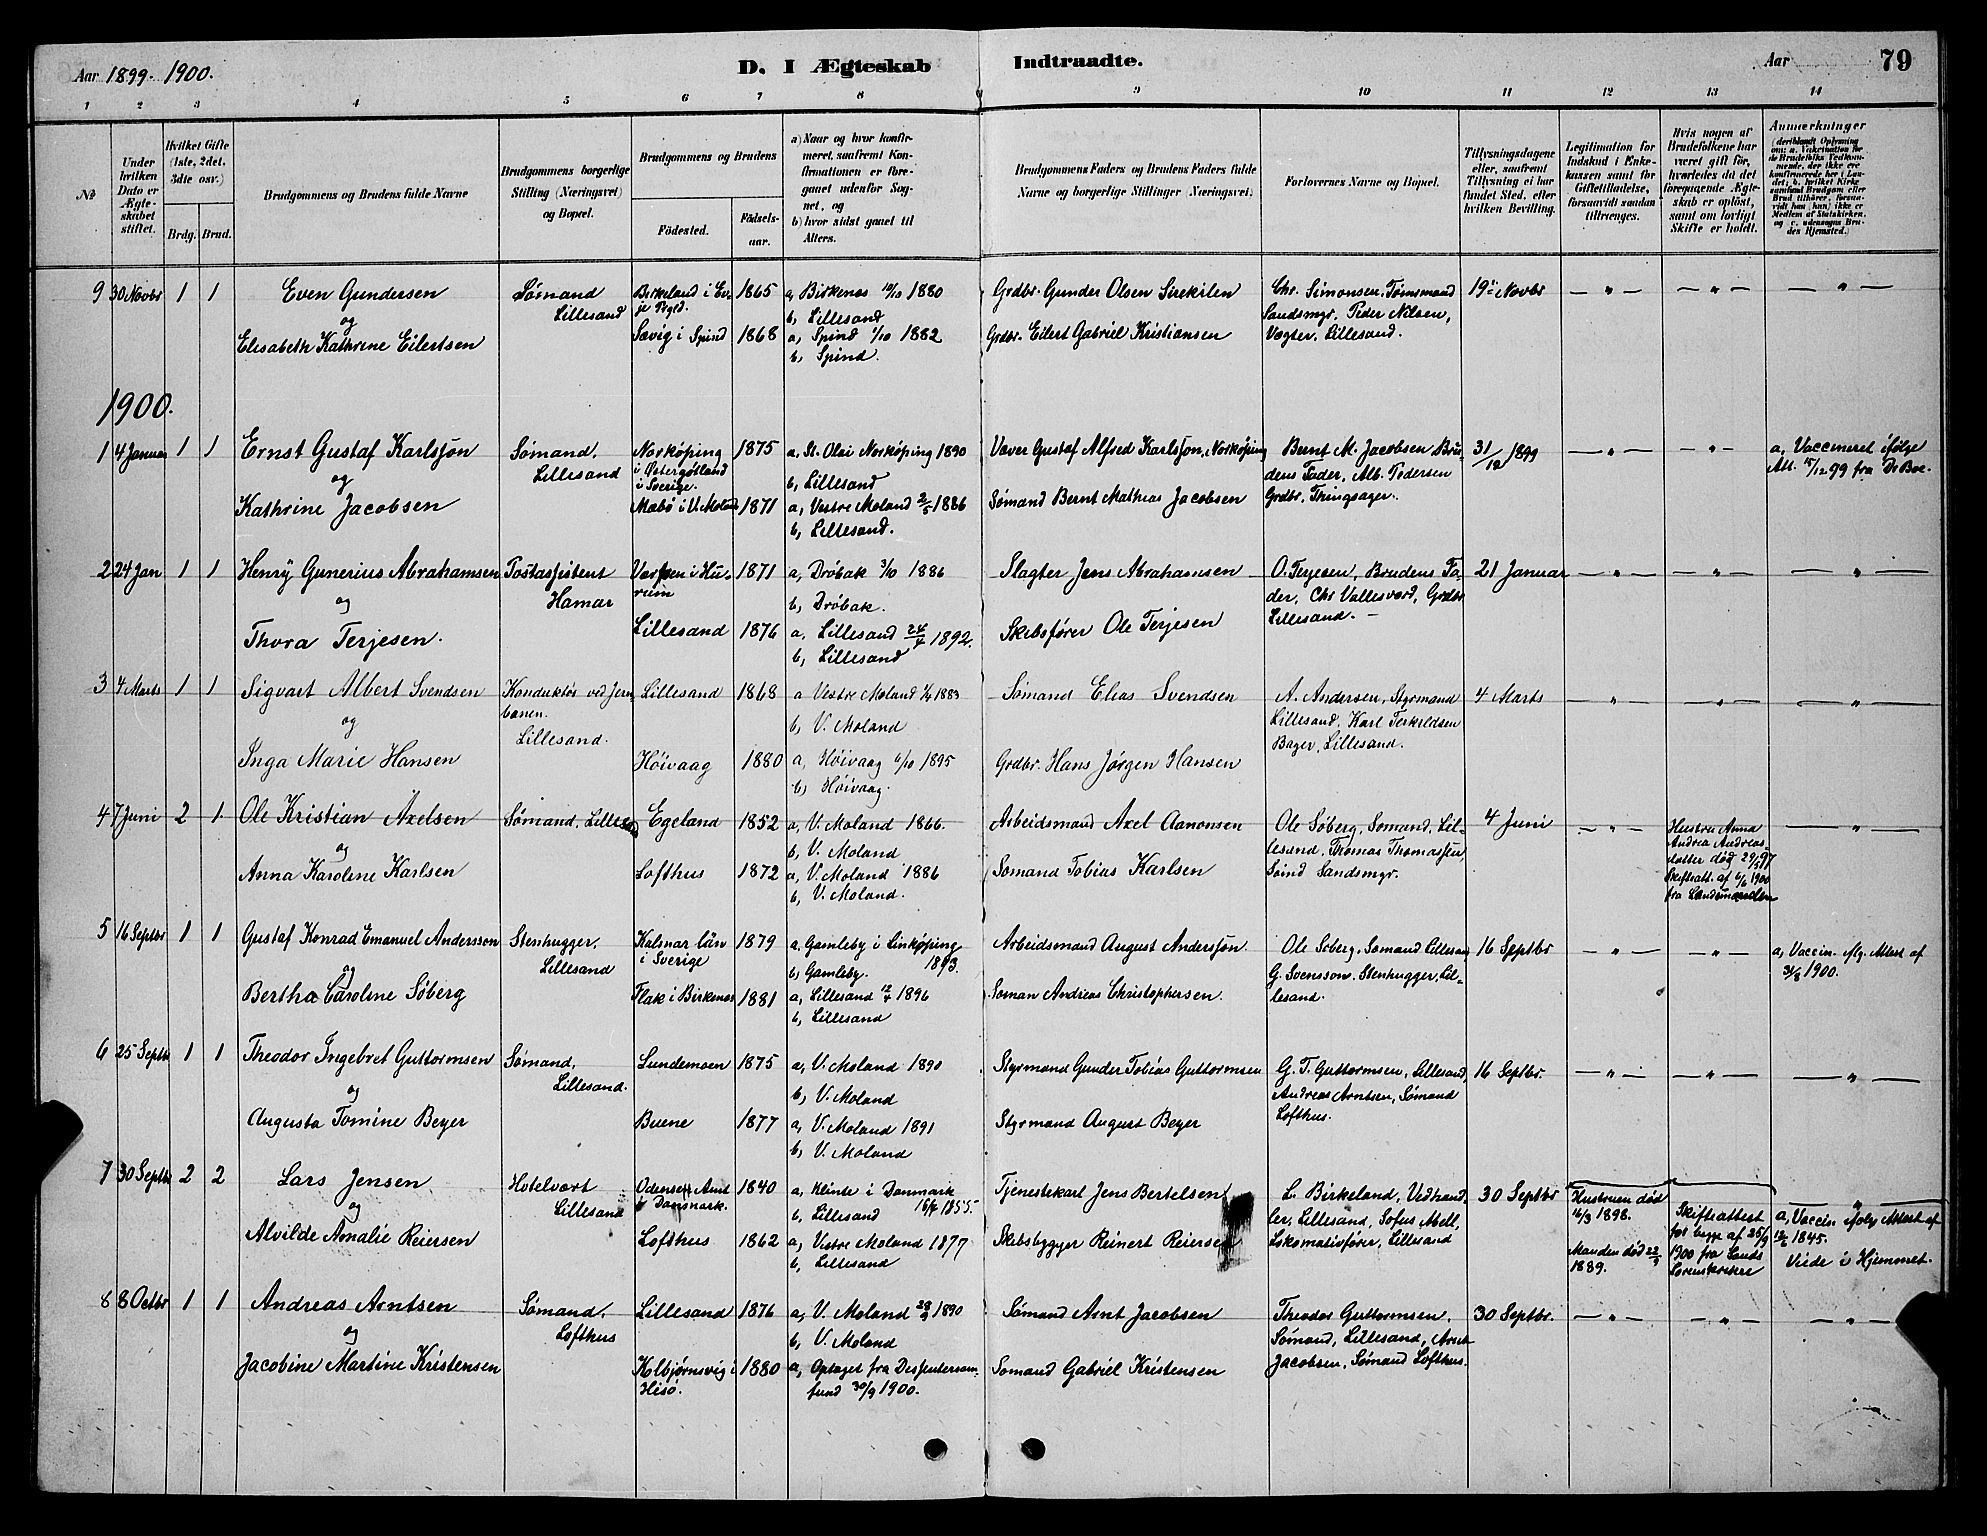 Aar 1899-1900.
D. I Ægteskab Indtraadte.
Aar 79
1 2 3 4 5 6 7 8 9 10 11 12 13 14
№
Under hvilken Dato er Ægteskabet stiftet.
Hvilket Gifte (1ste, 2det, 3die osv.)
Brdg. Brud.
Brudgommens og Brudens fulde Navne
Brudgommens borgerlige Stilling (Næringsvei) og Bopæl.
Brudgommens og Brudens
Födested.
Födselsaar.
a) Naar og hvor konfirmeret, saafremt Konfirmationen er foregaaet udenfor Sognet, og
b) hvor sidst gaaet til Alters.
Brudgommens Faders og Brudens Faders fulde Navne og borgerlige Stillinger (Næringsvei).
Forlovernes Navne og Bopæl.
Tillysningsdagene eller, saafremt Tillysning ei har fundet Sted, efter hvilken Bevilling.
Legitimation for Indskud i Enkekassen samt for Giftetilladelse, forsaavidt saadan tiltrænges.
Hvis nogen af Brudefolkene har været gift för, hvorledes da det foregaaende Ægteskab er oplöst, samt om lovligt Skifte er holdt.
Anmærkninger
9 30 Novbr 1 1 Even Gundersen
og
Elisabeth Kathrine Eilertsen
Sømand
Lillesand
Birkeland i Evje Pgld. 1865 a, Birkenes 10/10 1880
b, Lillesand
Savig i Spind 1868 a, Spind 1/10 1882
b, Spind.
Grdbr. Gunder Olsen Sirekilen
Grdbr. Eilert Gabriel Kristiansen
Chr. Simonsen, Tømmmand
Sandsmyr. Peder Nilsen,
Vægter, Lillesand.
19de Novbr
1900.
1 4 Januar 1 1 Ernst Gustaf Karlsson
og
Kathrine Jacobsen
Sømand,
Lillesand
Norköping
i Østergøtland
i Sverige. 1875 a, St. Olai Norköping 1890
b, Lillesand
Mæbø i V. Moland 1871 a, Vestre Moland 2/5 1886
b, Lillesand.
Væver Gustaf Alfred Karlsson, Norköping
Sømand Bernt Mathias Jacobsen
Bernt M. Jacobsen Brudens Fader, Alb. Pedersen
Grdbr, Thingsager.
31/12 1899
a, Vaccineret ifølge
Att. 15/12 99 fra Dr Boe.
2 24 Jan 1 1 Henry Gunerius Abrahamsen
og
Thora Terjesen.
Postassistent
Hamar
i Hurum 1871 a, Drøbak 3/10 1886
b, Drøbak.
Lillesand 1876 a, Lillesand 24/4 1892.
b, Lillesand
Slagter Jens Abrahamsen
Skibsfører Ole Terjesen
O. Terjesen, Brudens Fader, Chr Vallesværd, Grdbr
Lillesand.
21 Januar
3 4 Marts 1 1 Sigvart Albert Svendsen
og
Inga Marie Hansen
Konduktør ved Jernbanen.
Lillesand.
Lillesand 1868 a Vestre Moland 1/4 1883
b, V. Moland
Høivaag 1880 a, Høivaag 6/10 1895
b, Høivaag.
Sømand Elias Svendsen
Grdbr. Hans Jørgen Hansen
A. Andersen, Styrmand
Lillesand, Karl Terkildsen
Bager, Lillesand.
4 Marts
4 7 Juni 2 1. Ole Kristian Axelsen
og
Anna Karoline Karlsen
Sømand, Lillesand
Egeland 1852 a, V. Moland 1866.
b, V. Moland
Lofthus 1872 a, V. Moland 1886
b, V. Moland.
Arbeidsmand Axel Aanonsen
Sømand Tobias Karlsen
Ole Søberg, Sømand, Lillesand, Thomas Thomassen,
Smed Sandsmyr.
4 Juni
Hustru Anna
Andrea Andreasdatter død 29/5 97
Skifteatt. af 6/6 1900
5 16 Septbr 1 1 Gustaf Konrad Emanuel Andersson
og
Bertha Caroline Søberg
Stenhugger,
Lillesand
Kalmar län
i Sverige 1879 a, Gamleby i Linköping
1893.
b, Gamleby.
Flak i Birkenes 1881 a, Lillesand 12/4 1896
b, Lillesand
Arbeidsmand August Andersson
Søman Andreas Christophersen.
Ole Søberg, Sømand Lillesand
G. Svensson, Stenhugger, Lillesand.
16 Septbr
a, Vaccin. iflg. Attest af
31/8 1900.
6 25 Septbr 1 1 Theodor Ingebret Guttormsen
og
Augusta Tomine Beyer
Sømand,
Lillesand.
Lundemoen 1875 a, V. Moland 1890
b, V. Moland
Buene 1877 a, V. Moland 1891
b, V. Moland
Styrmand Gunder Tobias Guttormsen
Styrmand August Beyer
G. T. Guttormsen, Lillesand,
Andreas Arntsen, Sømand
Lofthus.
16 Septbr.
7 30 Septbr 2 2 Lars Jensen
og
Alvilde Amalie Reiersen
Hotelvært
Lillesand
Odense Amt
Danmark. 1840 a, Klinte i Danmark
1855.
b, Lillesand
Lofthus 1862 a, Vestre Moland 1877
b, Lillesand
Tjenestekarl Jens Bertelsen
Skibsbygger Reinert Reiersen
L. Birkeland, Vedhandler, Lillesand, Sofus Abell,
Lokomotivfører, Lillesand
30 Septbr
Hustruen død
16/3 1898.
Manden død 22/9
1889.
Skifteattest
for begge af 25/9
1900 fra Sands
Sorenskriveri
a, Vaccin. ifølg Attest af
1845.
Viede i Hjemmet.
8 8 Octbr 1 1 Andreas Arntsen
og
Jacobine Martine Kristensen
Sømand,
Lofthus
Lillesand 1876 a, V. Moland 28/9 1890
b, V. Moland
Kolbjørnsvig i
Hisø. 1880 a, Optaget fra Dissentersamfund 30/9 1900.
Sømand Arnt Jacobsen
Sømand Gabriel Kristensen
Theodor Guttormsen,
Sømand, Lillesand, Arnt
Jacobsen, Sømand Lofthus.
30 Septbr.